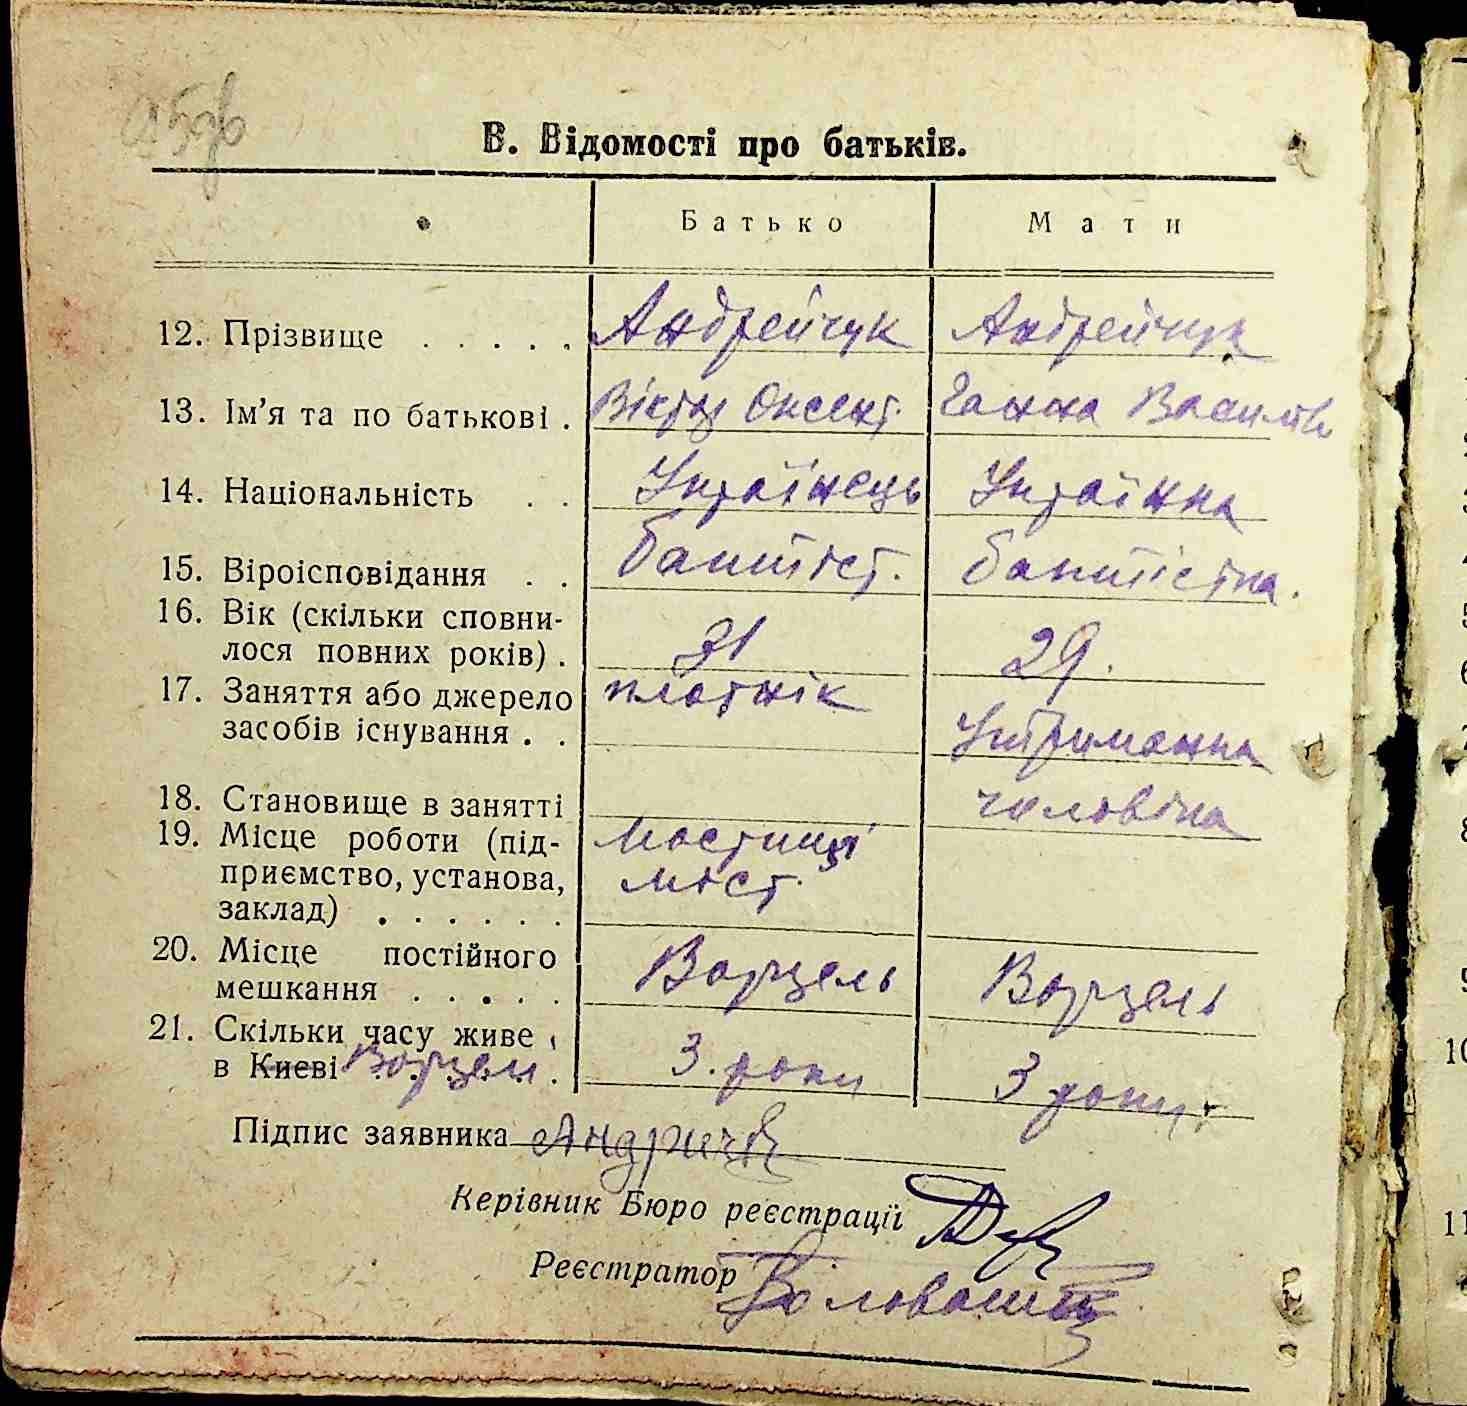 В. Відомості про батьків.
Батько Мати
12. Прізвище . . . . . Андрейчук Андрейчук
13. Ім'я та по батькові . Віктор Оксент. Ганна Василів
14. Національність . . Українець Українка
15. Віроісповідання . . баптіст. баптістка.
16. Вік (скільки сповни-
лося повних років) . 31 29.
17. Заняття або джерело плотнік
засобів існування . . Утриманка
18. Становище в занятті чоловіка
19. Місце роботи (під- Мостиці
приємство, установа, мост.
заклад) . . . . . .
20. Місце постійного
мешкання . . . . . Ворцель Ворцель
21. Скільки часу живе
в Києві Ворцели . 3. роки 3 роки
Підпис заявника
Керівник Бюро реєстрації
Реєстратор